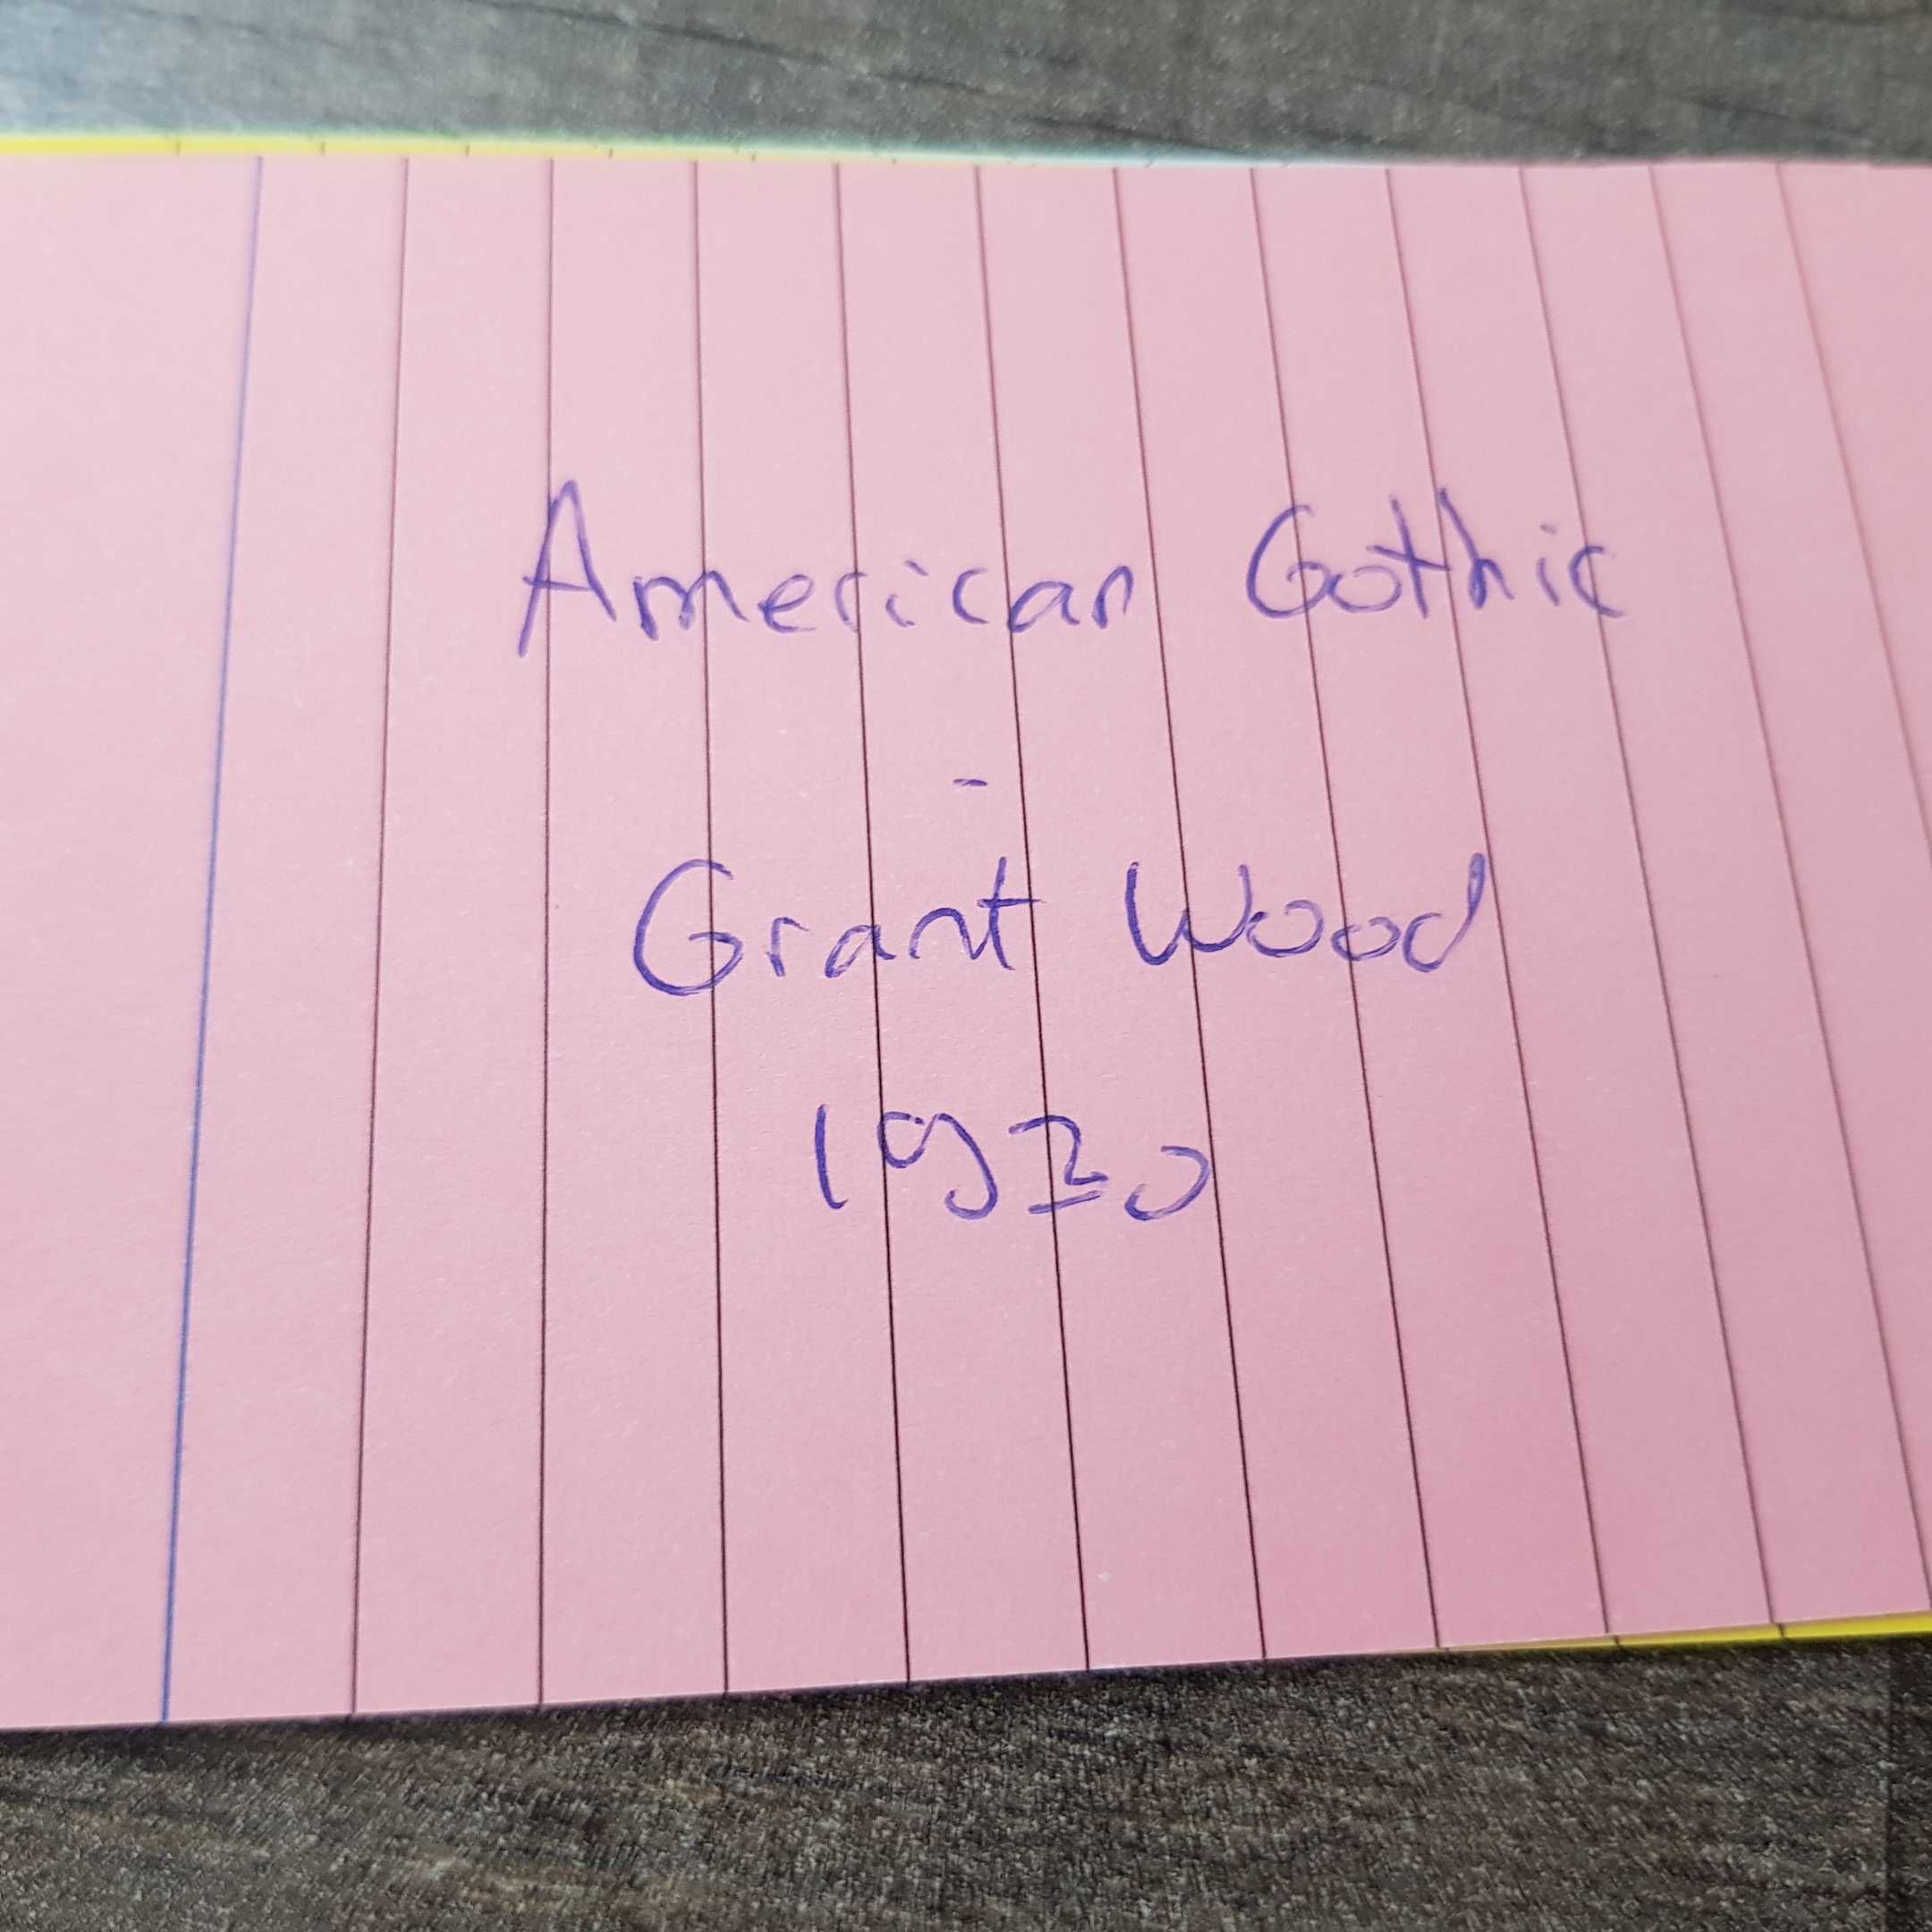 American Gothic
-
Grant Wood
1930